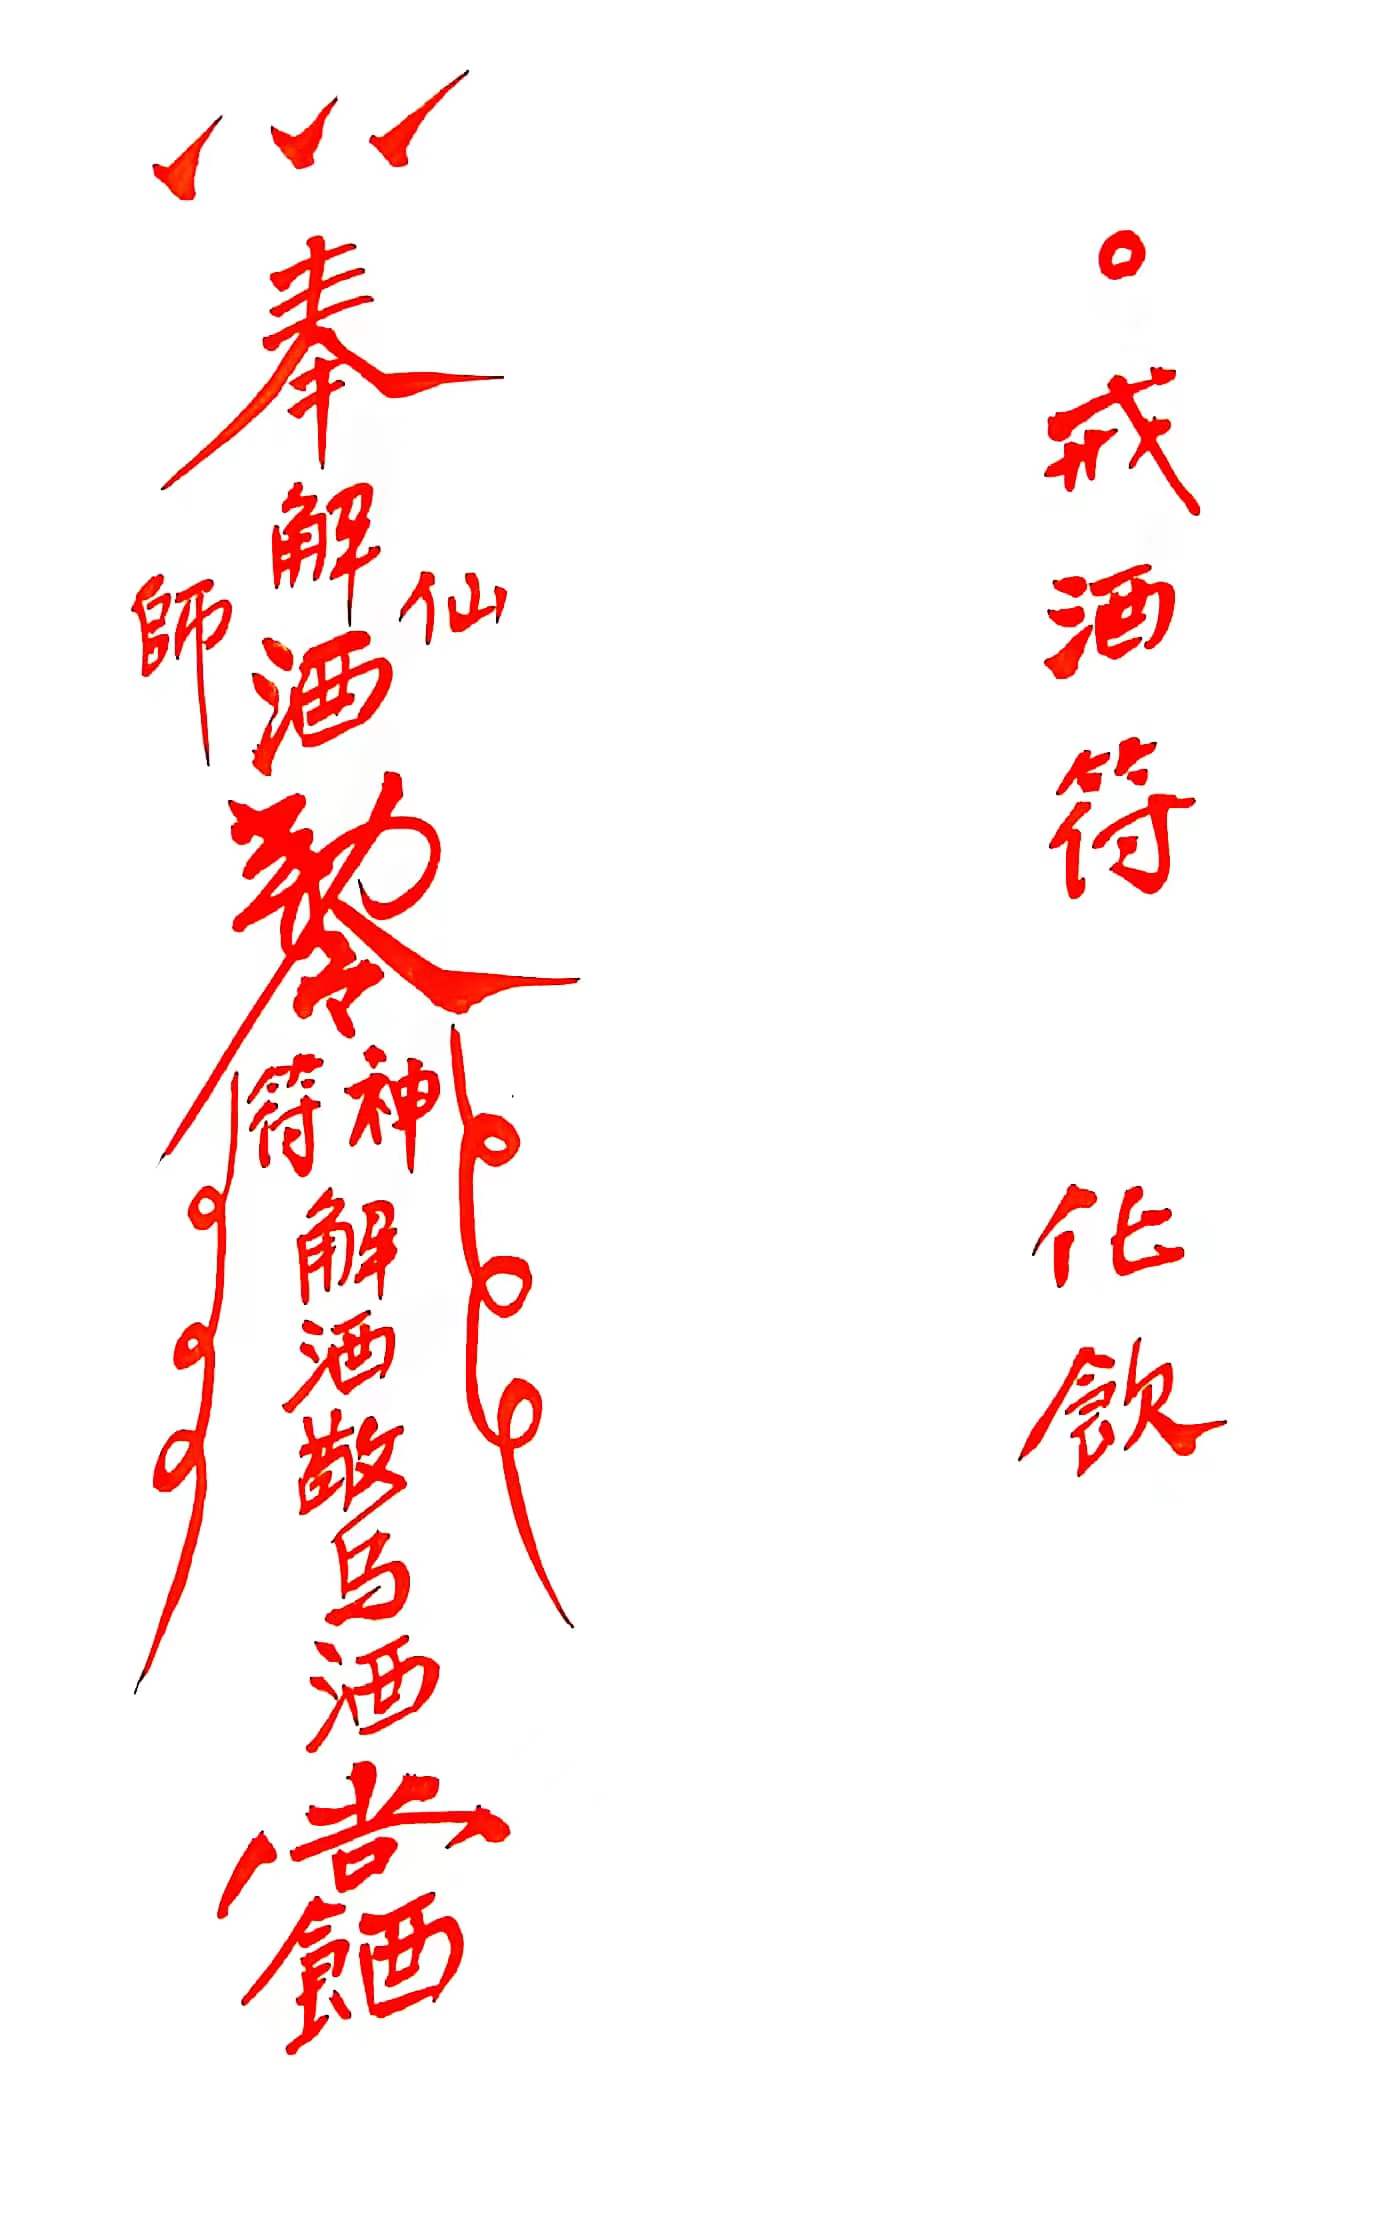 戒酒符
化飲
奉
解酒
仙
師
勅令
神
符
解酒敬
酒